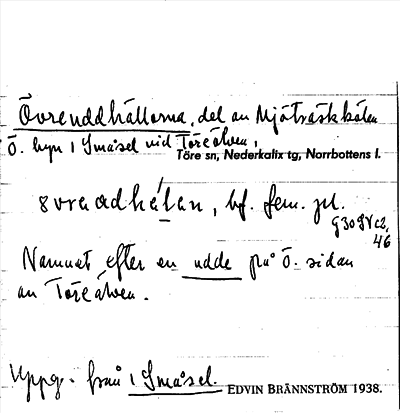 Övreuddhällorna, del av Mjöträskhälen
Ö. byn i Småsel vid Töreälven,
Töre sn, Nederkalix tg, Norrbottens l.
bf. fem. pl.
46
Namnet efter en udde på Ö. sidan
av Töreälven.
Uppg. från i Småsel. EDVIN BRÄNNSTRÖM 1938.